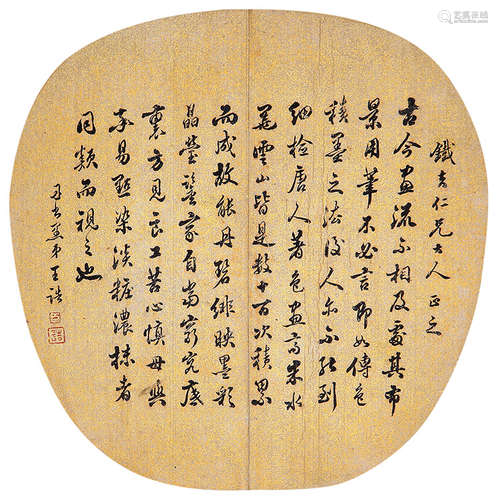 鐵吉仁兄大人正之
古今画流不相及處其布
景用筆不必言即如傅色
積墨之法後人亦不能到
細檢唐人著色画高朱水
花雲山皆是数十百次積累
而成故能丹碧俳映墨彩
晶瑩鑒家自當窮究底
裏方見良工苦心慎毋與
率易點染淡粧濃抹者
同類而視之也
弟王诰